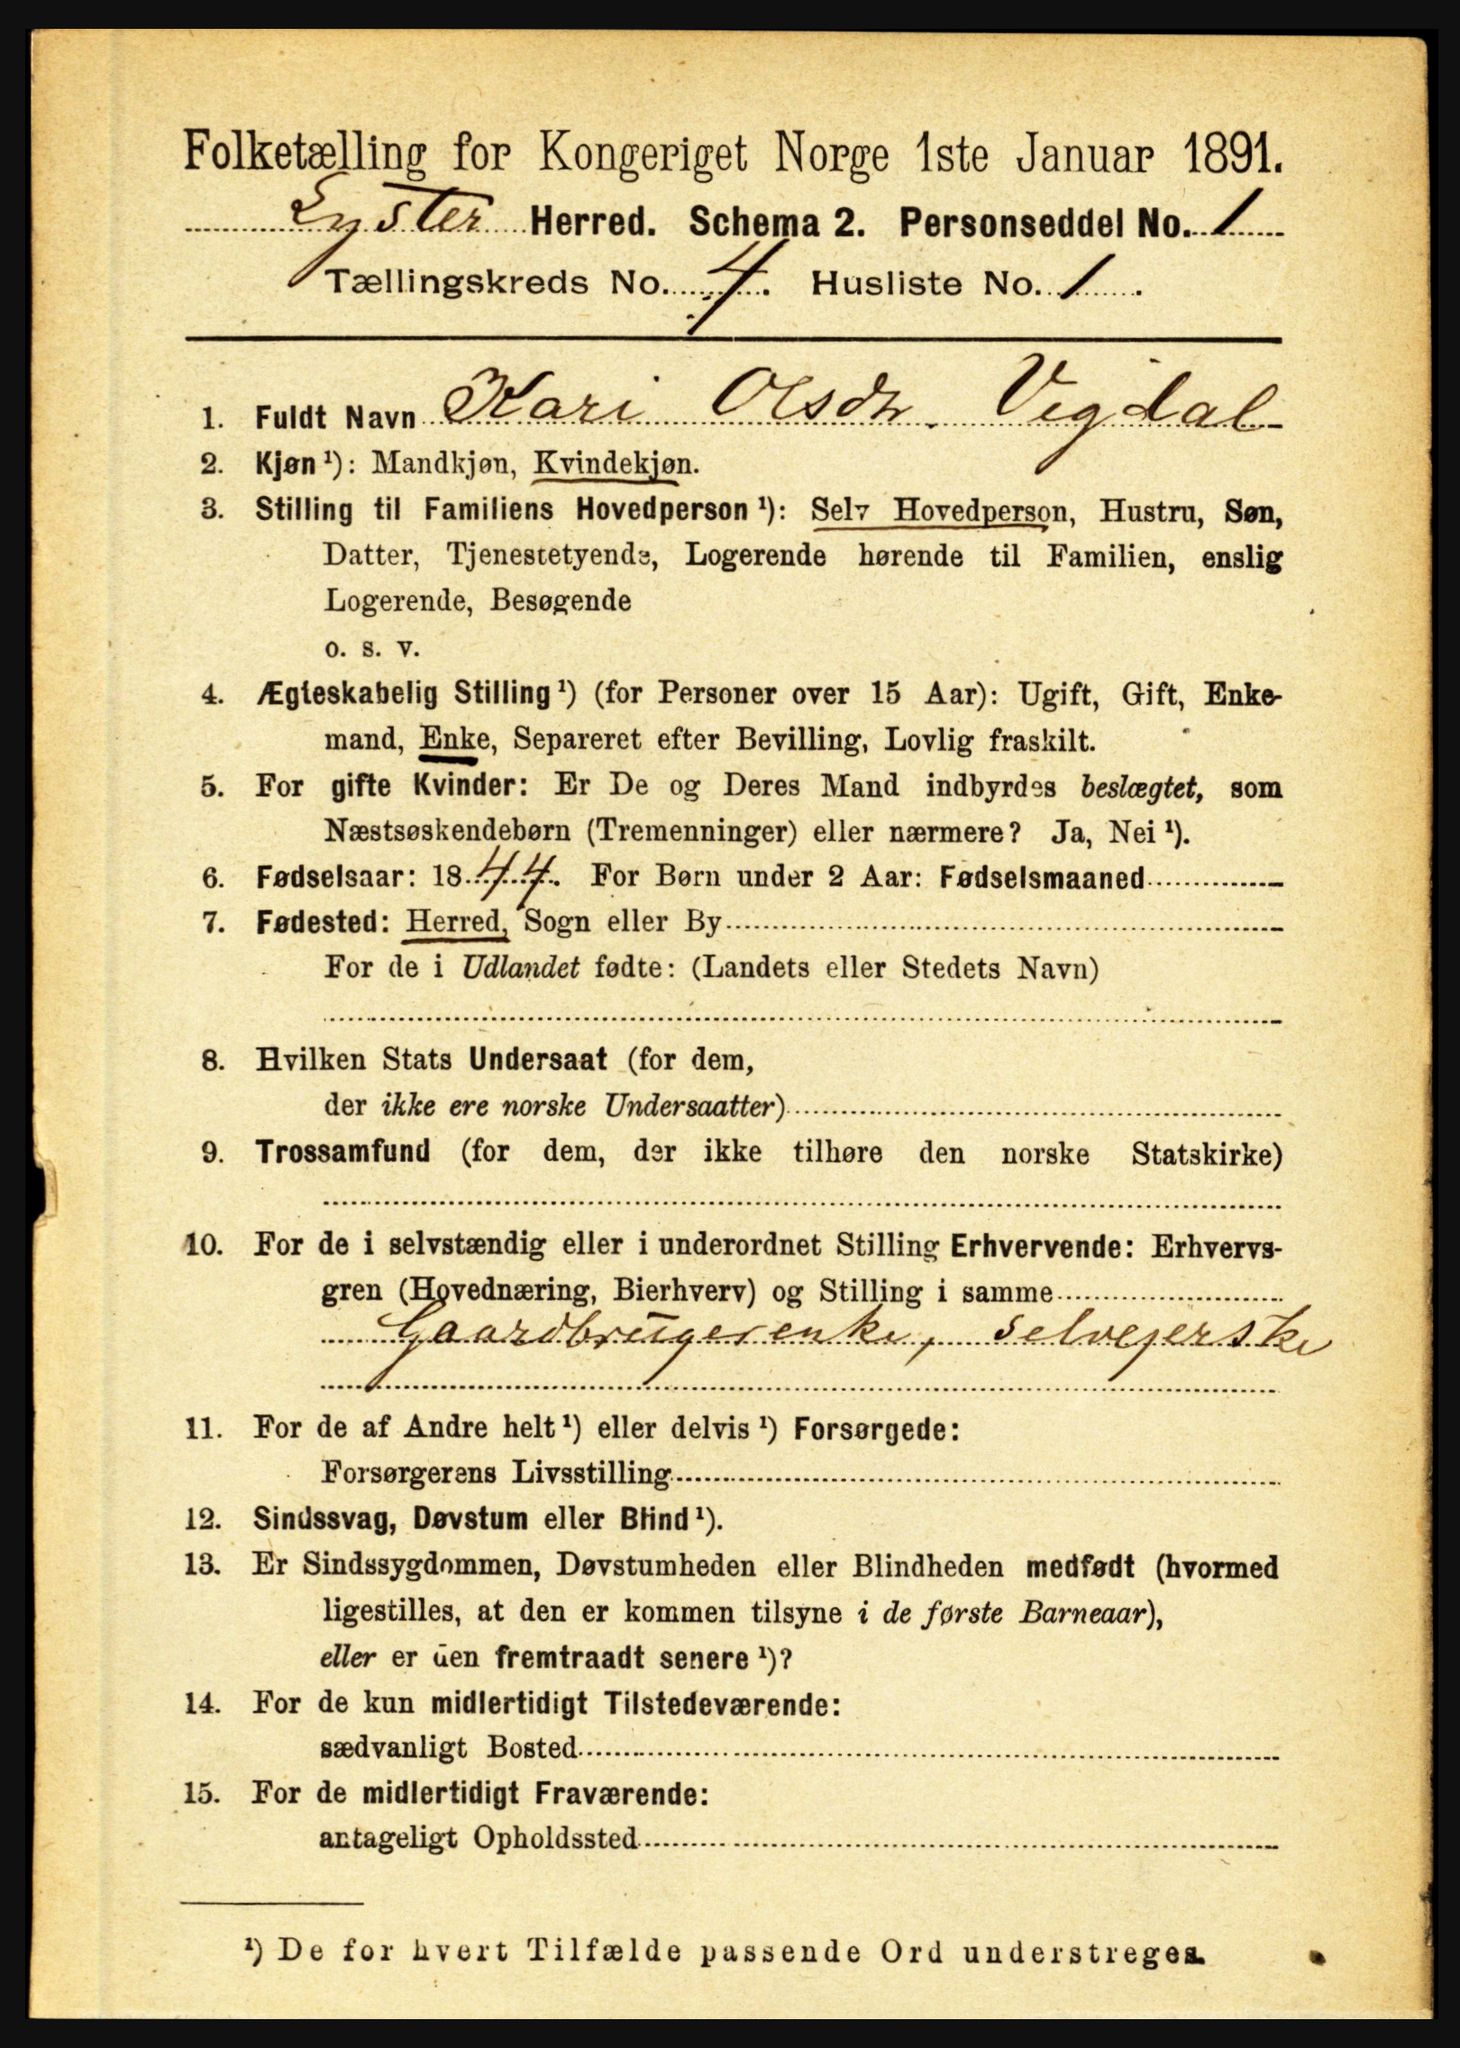 Folketælling for Kongeriget Norge 1ste Januar 1891.
Lyster Herred. Schema 2. Personseddel No. 1
Tællingskreds No. 4. Husliste No. 1.
1. Fuldt Navn Kari Olsdr. Vigdal
2. Kjøn ¹): Mandkjøn, Kvindekjøn.
3. Stilling til Familiens Hovedperson ¹): Selv Hovedperson, Hustru, Søn,
Datter, Tjenestetyende, Logerende hørende til Familien, enslig
Logerende, Besøgende
o. s. v.
4. Ægteskabelig Stilling ¹) (for Personer over 15 Aar): Ugift, Gift, Enke-
mand, Enke, Separeret efter Bevilling, Lovlig fraskilt.
5. For gifte Kvinder: Er De og Deres Mand indbyrdes beslægtet, som
Næstsøskendebørn (Tremenninger) eller nærmere? Ja, Nei ¹).
6. Fødselsaar: 1844. For Børn under 2 Aar: Fødselsmaaned
7. Fødested: Herred, Sogn eller By
For de i Udlandet fødte: (Landets eller Stedets Navn)
8. Hvilken Stats Undersaat (for dem,
der ikke ere norske Undersaatter)
9. Trossamfund (for dem, der ikke tilhøre den norske Statskirke)
10. For de i selvstændig eller i underordnet Stilling Erhvervende: Erhvervs-
gren (Hovednæring, Bierhverv) og Stilling i samme
Gaardbrugerenke, selvejerske
11. For de af Andre helt ¹) eller delvis ¹) Forsørgede:
Forsørgerens Livsstilling
12. Sindssvag, Døvstum eller Blind ¹).
13. Er Sindssygdommen, Døvstumheden eller Blindheden medfødt (hvormed
ligestilles, at den er kommen tilsyne i de første Barneaar),
eller er den fremtraadt senere ¹)?
14. For de kun midlertidigt Tilstedeværende:
sædvanligt Bosted
15. For de midlertidigt Fraværende:
antageligt Opholdssted
¹) De for hvert Tilfælde passende Ord understreges.